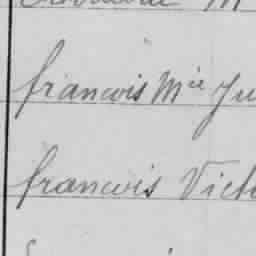 francois Mie Ju
francois Vict